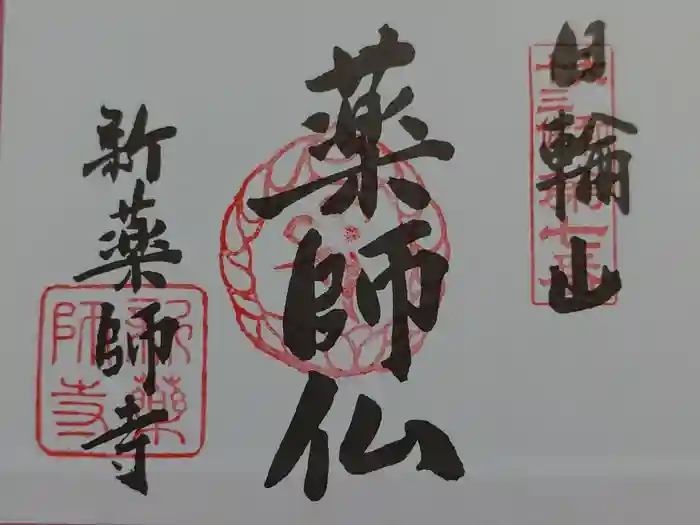 日輪山
薬師仏
新薬師寺
新薬
師寺